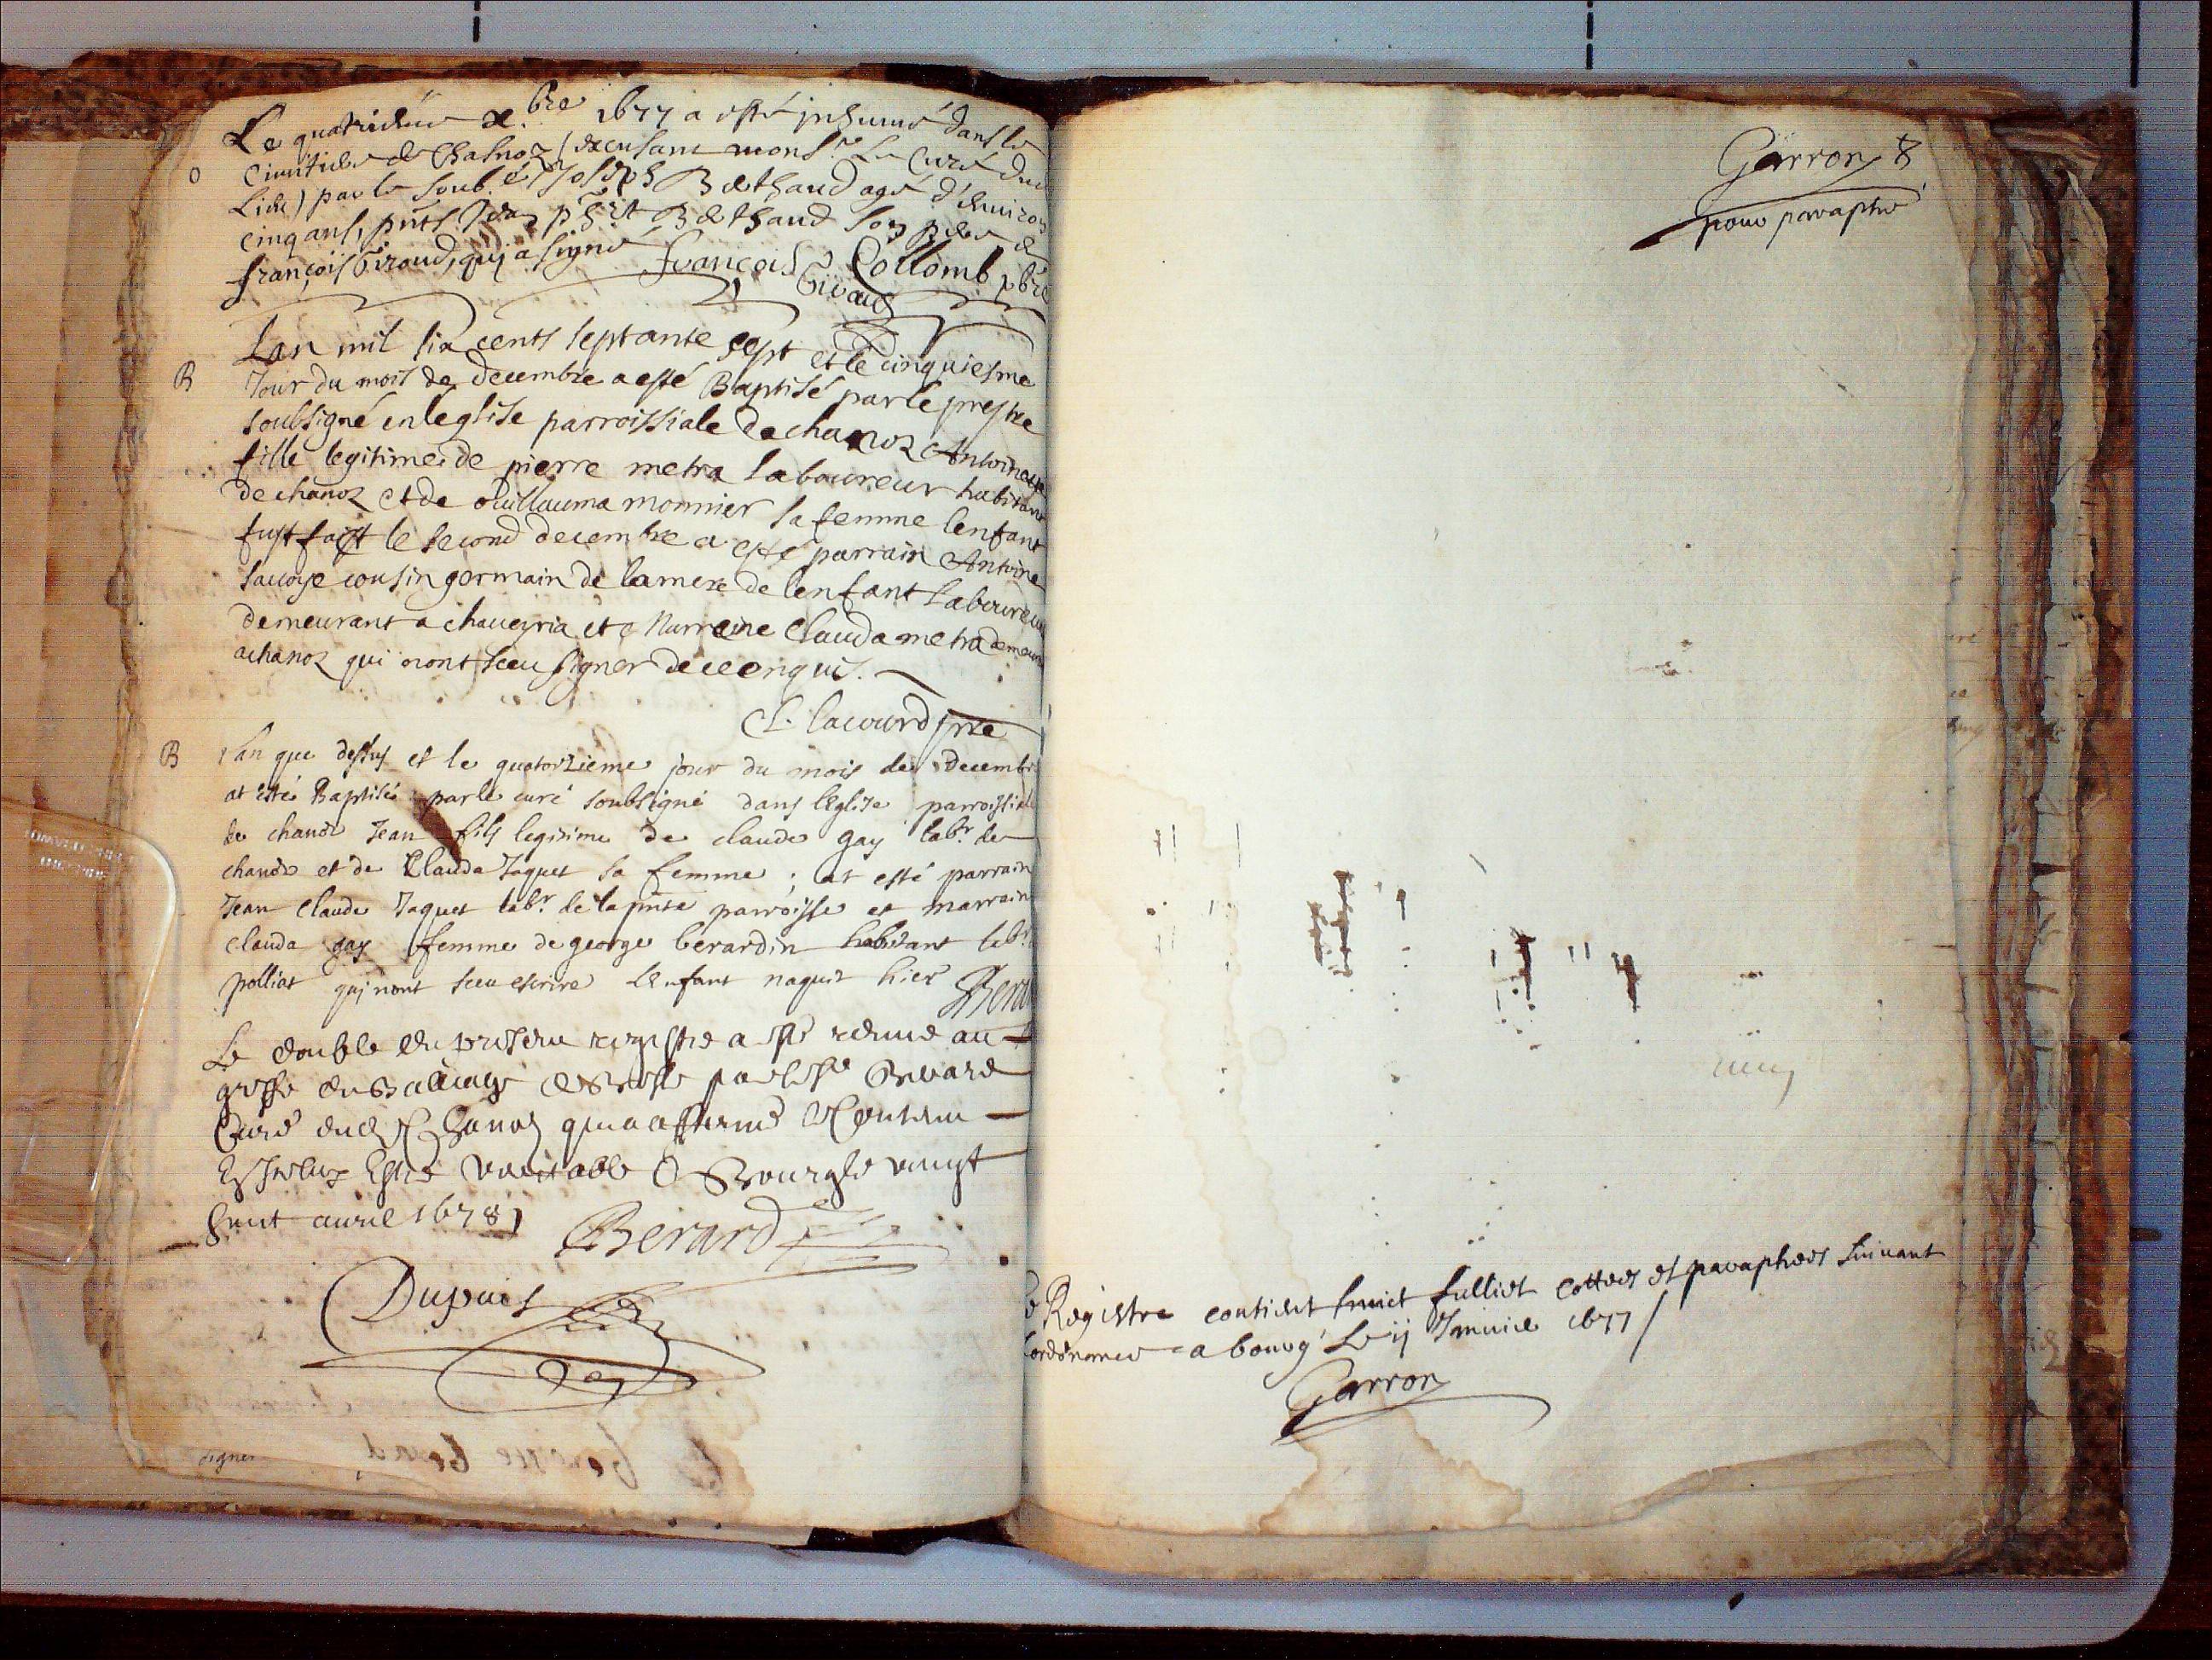 Le quatriesme xbre 1677 a esté inhumé dans le
O cimitiere de Chasnoz (excusant monsr Le Curé dud
Lieu) par le soub.é Joseph Bethaud agé d'environ
cinq ans, pnts Jean phrt Bethaud son pere &
françois Giroud, qui a signé françois Collomb pbre
Giraud
Lan mil six cents septante sept et le cinquiesme
B Jour du mois de decembre a esté Baptisé par le prestre
soubsigné en leglise parroissiale de chanoz Anthoinette
fille legitime de pierre metra laboureur habitant
de chanoz et de Guillauma monnier sa femme lenfant
fust faist le second decembre a esté parrain Antoine
savoye cousin germain de la mere de lenfant laboureur
demeurant a chaveyria et Marreine Clauda metra demeur
a chanoz qui nont sceu signer de ce enquis.
C. lacourd pre
B l'an que dessus et le quatorzieme jour du mois de decembre
at esté Baptisé par le curé soubsigné dans l'Eglise parroissiale
de chanoz Jean fils legitime de claude gay labr de
chanoz et de Clauda Jaquet sa femme ; at esté parrain
Jean Claude Jaquet labr de la pnte parroisse et marraine
Clauda gay femme de george berardin habitant labr
polliat qui nont sceu escrire l'enfant naquit hier Bera
Le double du present registre a esté remis au
greffe du Balliage de Bresse par Bérard
Curé dud Chanoz qui a affirmé le Contenu
Estre veritable A Bourg le vingt
huit avril 1678
Berard
Dupuis
signer
Garron 8
pour paraphe
Registre contient huict fulliet cottees et paraphees suivant
lordonnance a bourg Le ij Janvier 1677 /
Garron